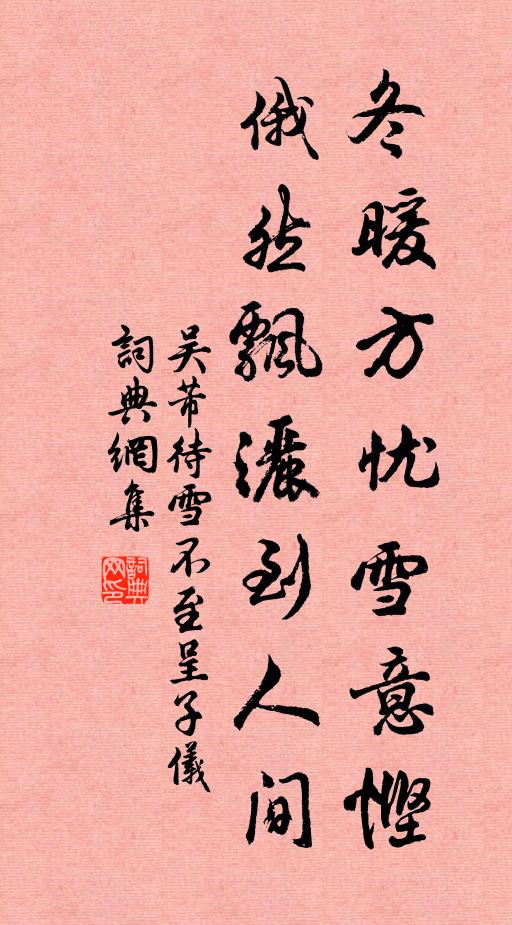 冬暖方忧雪意悭
俄然飄灑到人间
吴芾待雪不至呈子儀
詞典網集
詞典网印